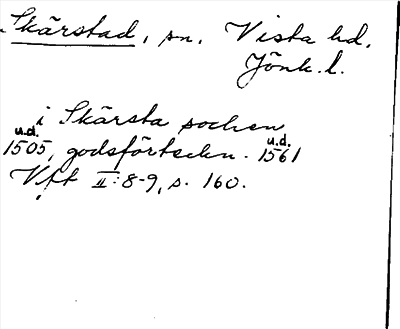 Skärstad, sn. Vista hd.
Jönk. l.
i Skärsta sochen
u.d. u.d.
1505, godsförteckn. 1561
Vft II: 8-9, s. 160.